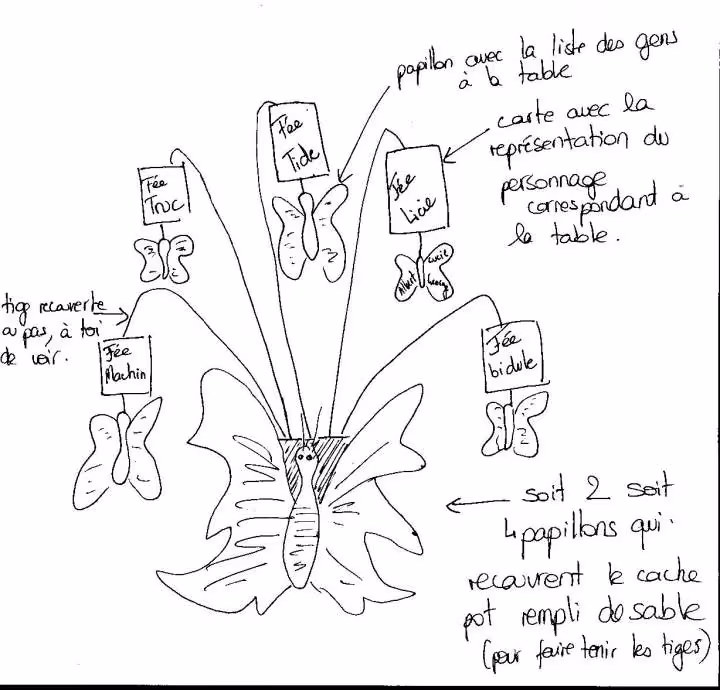 papillon avec la liste des gens
à la table
carte avec la
représentation du
personnage
correspondant à
la table.
Fée
Tide
Fée
Truc
Fée
Licie
Albert
Lucie
tige recouverte
ou pas, à toi
de voir.
Fée
Machin
Fée
bidule
soit 2 soit
4 papillons qui
recouvrent le cache
pot rempli de sable
(pour faire tenir les tiges)